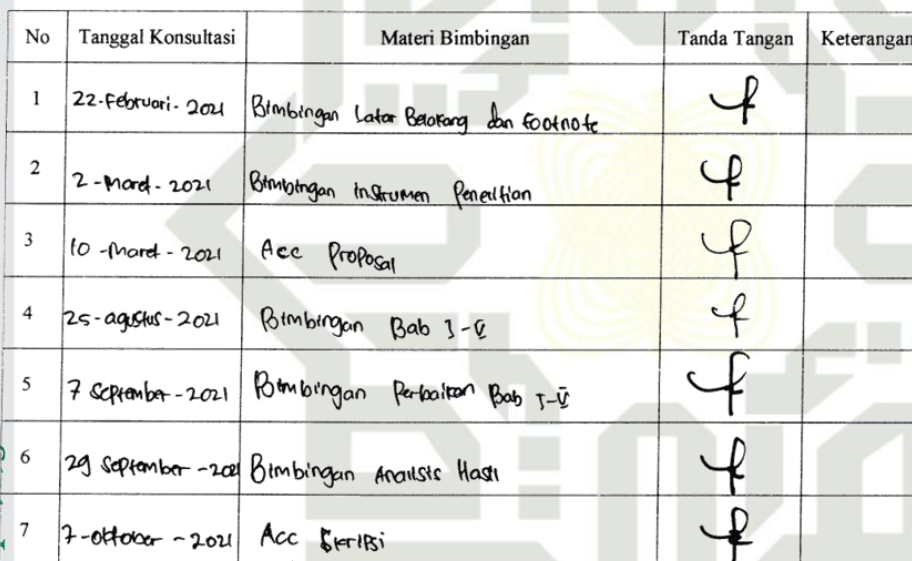 No Tanggal Konsultasi Materi Bimbingan Tanda Tangan Keterangan
1 22-Februari-2021 Bimbingan Latar Belakang dan Footnote
2 2-Maret-2021 Bimbingan instrumen Penelitian
3 10-Maret-2021 Acc Proposal
4 25-agustus-2021 Bimbingan Bab I-V
5 7 September-2021 Bimbingan Perbaikan Bab I-V
6 29 September-2021 Bimbingan Analisis Hasil
7 7-oktober-2021 Acc Skripsi